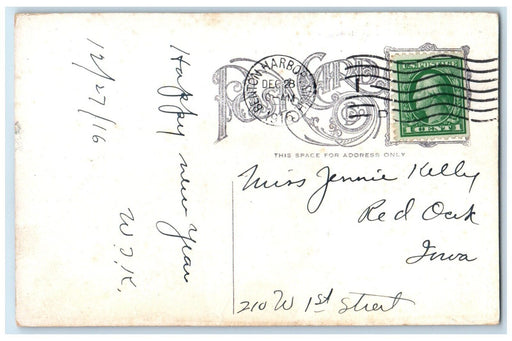 12/27/16
Happy new year
W.J.K.
Post Card
BENTON HARBOR
DEC 28
AM
1916
U.S. POSTAGE
1 CENT 1
THIS SPACE FOR ADDRESS ONLY
Miss Jennie Kelly
Red Oak
Iowa
210 W 1st Street